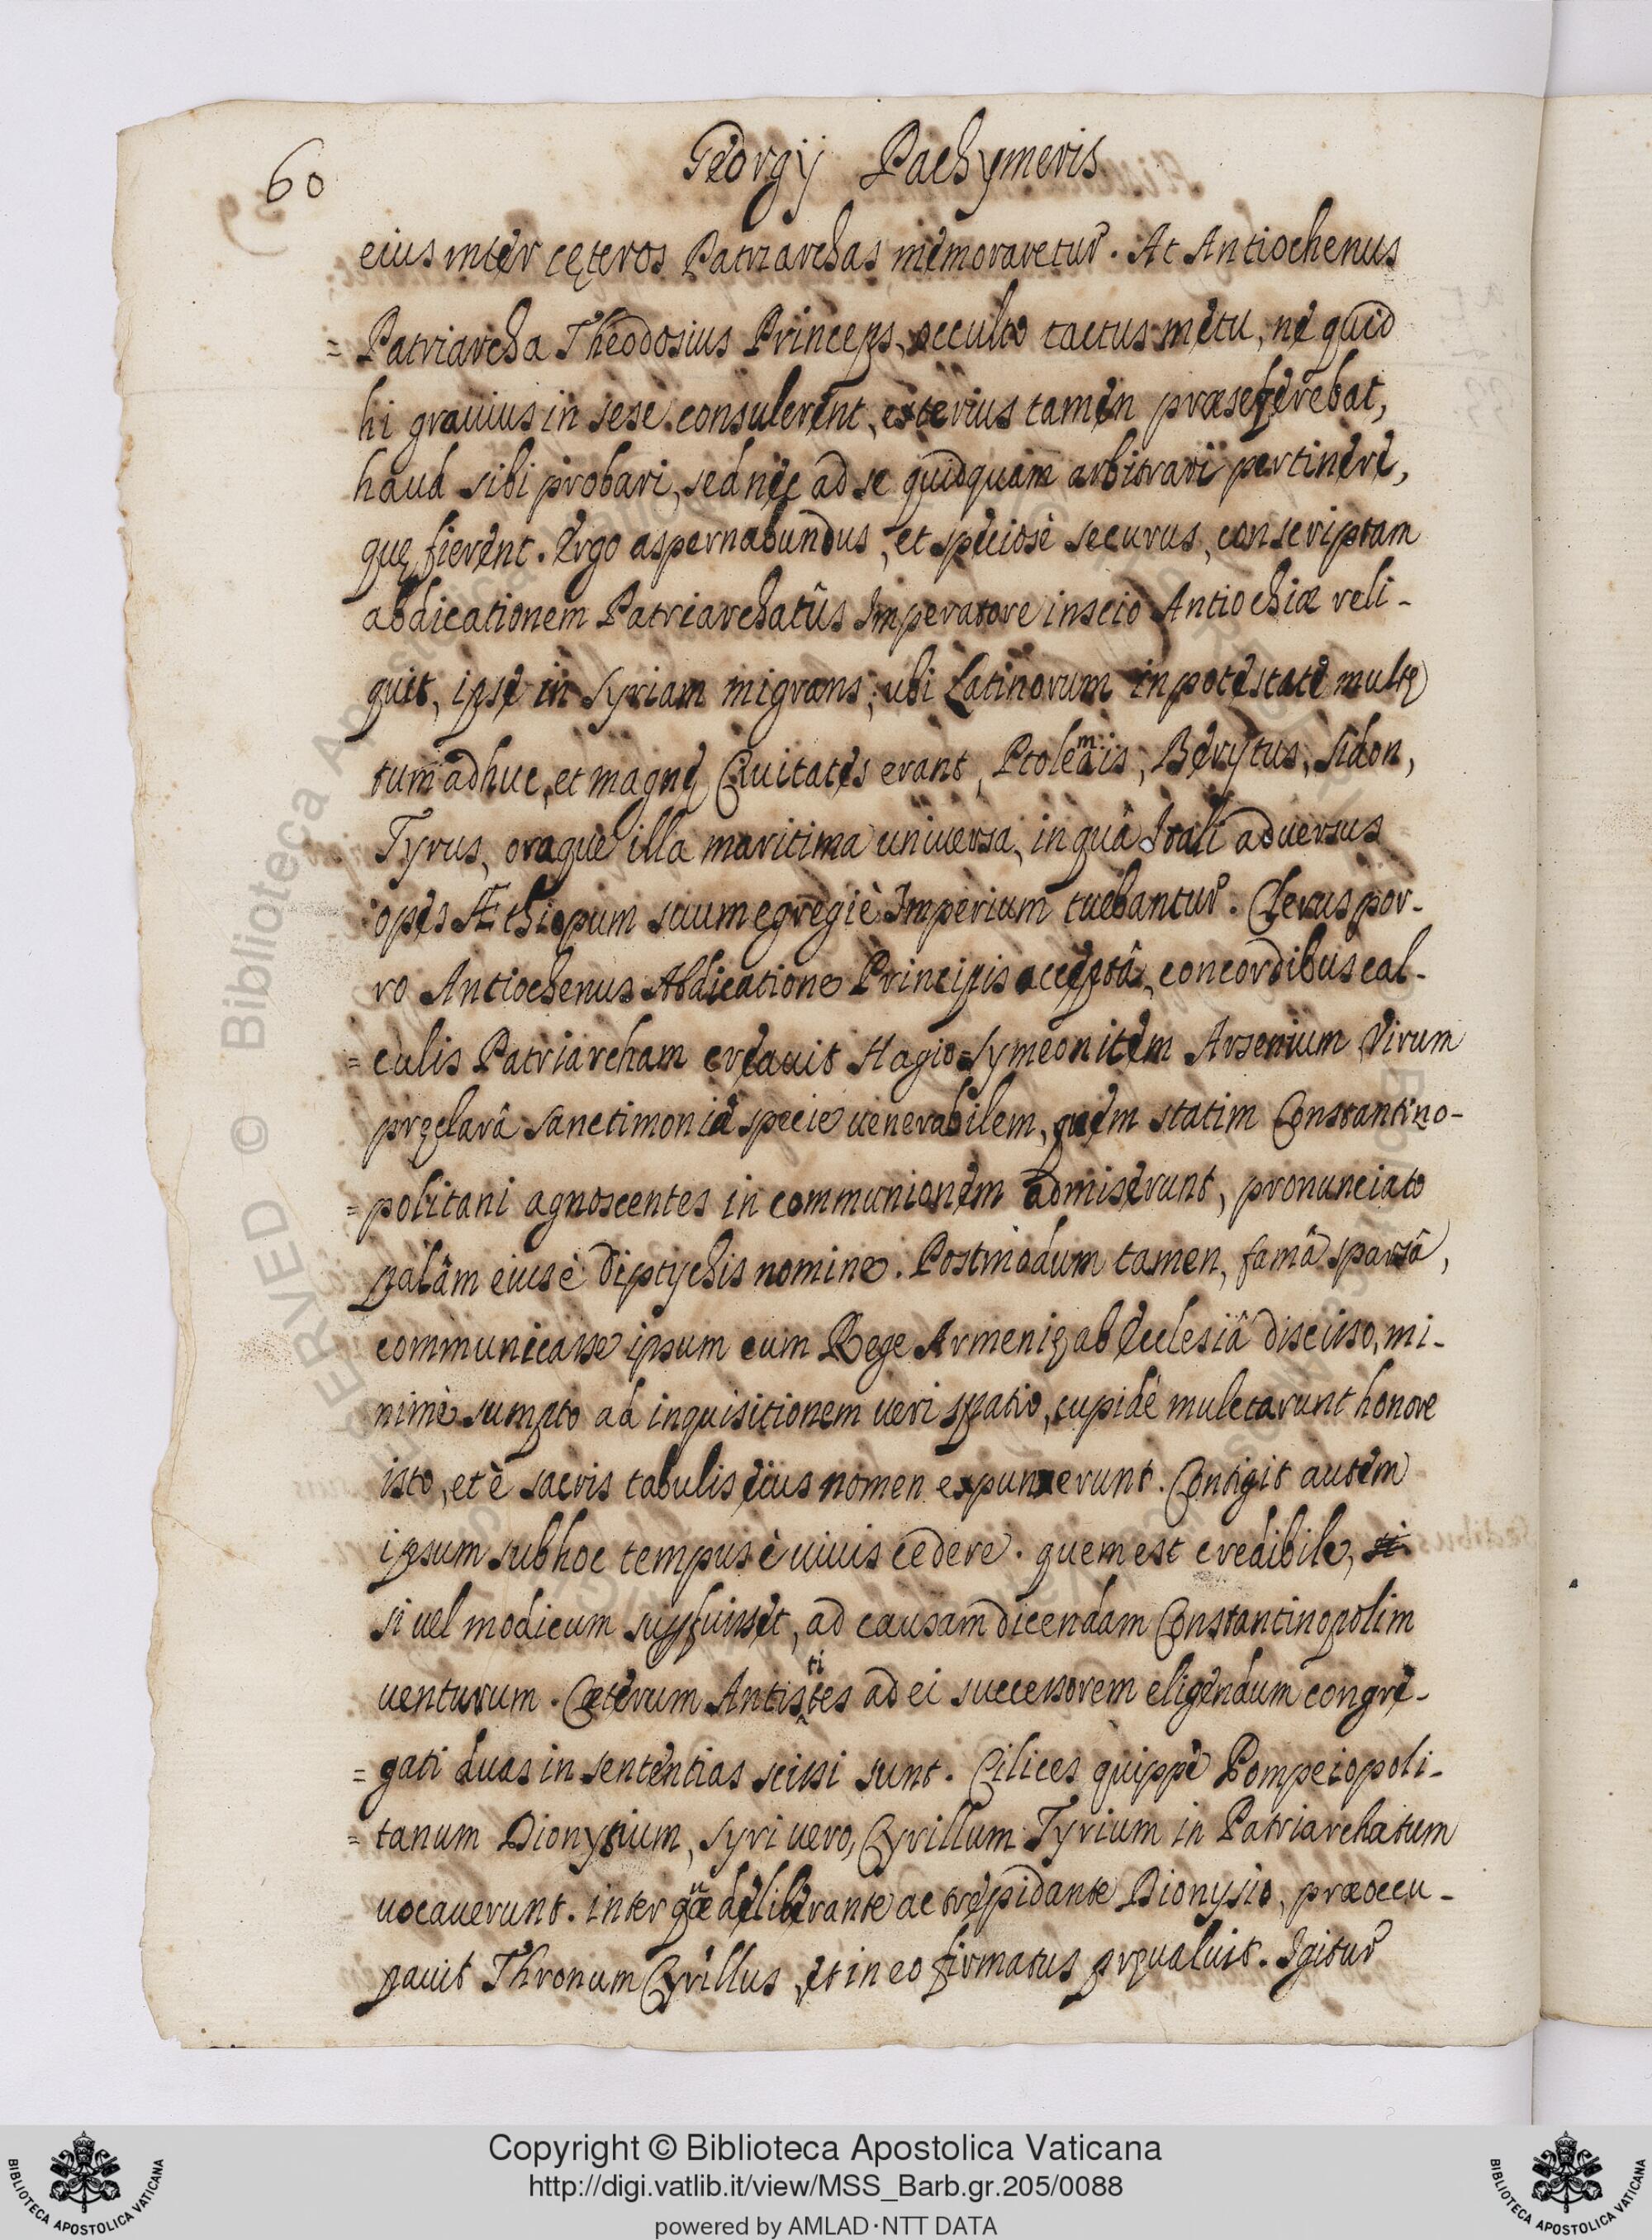 60
Georgij Pachymeris
eius inter cęteros Patriarchas memoraretur. At Antiochenus
= Patriarcha Theodosius Princeps, occulto tactus metu, ne quid
hi grauius in sese consulerent, exterius tamen præseferebat,
haud sibi probari, sed nec ad se quidquam arbitrari pertinere,
quę fierent. Ergo aspernabundus, et speciosè securus, conscriptam
abdicationem Patriarchatûs Imperatore inscio Antiochiæ reli-
quit, ipse in Syriam migrans, ubi Latinorum in potestate multę
tum adhuc, et magnę Ciuitates erant, Ptolemais, Berytus, Sidon,
Tyrus, oraque illa maritima uniuersa, in quâ Itali aduersus
opes Æthiopum suum egregiè Imperium tuebantur. Clerus por-
ro Antiochenus Abdicatione Principis acceptâ, concordibus cal-
= culis Patriarcham creauit Hagio=Symeonitem Arsenium Virum
pręclarâ sanctimoniâ specie uenerabilem, quem statim Constantino-
= politani agnoscentes in communionem admiserunt, pronunciato
palâm eius è Diptychis nomine. Postmodum tamen, famâ sparsâ,
communicasse ipsum cum Rege Armenię ab Ecclesiâ discisso, mi-
nimè sumpto ad inquisitionem ueri spatio, cupidè mulctarunt honore
isto, et è sacris tabulis eius nomen expunxerunt. Contigit autem
ipsum sub hoc tempus è uiuis cedere. quem est credibile, si
si uel modicum suffuisset, ad causam dicendam Constantinopolim
uenturum. Cæterum Antistites ad ei successorem eligendum congre-
= gati duas in sententias scissi sunt. Cilices quippe Pompeiopoli-
= tanum Dionysium, Syri uero, Cyrillum Tyrium in Patriarchatum
uocauerunt. interquæ deliberante ac trepidante Dionysio, præoccu-
pauit Thronum Cyrillus, et in eo firmatus pręualuit. Igitur
Copyright © Biblioteca Apostolica Vaticana
http://digi.vatlib.it/view/MSS_Barb.gr.205/0088
powered by AMLAD·NTT DATA
BIBLIOTECA APOSTOLICA VATICANA
BIBLIOTECA APOSTOLICA VATICANA